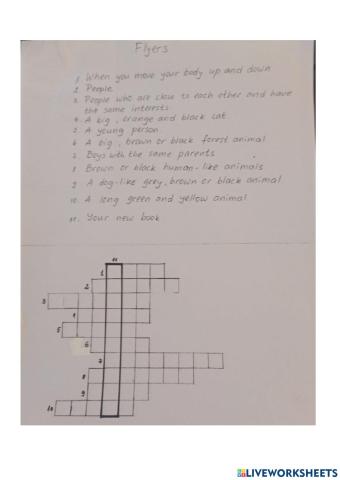 Flyers
1. When you move your body up and down
2. People
3. People who are close to each other and have
the same interests.
4. A big, orange and black cat
5. A young person
6. A big, brown or black forest animal
7. Boys with the same parents
8. Brown or black human-like animals
9. A dog-like grey, brown or black animal
10. A long green and yellow animal
11. Your new book
11
1
2
3
4
5
6
7
8
9
10
LIVEWORKSHEETS